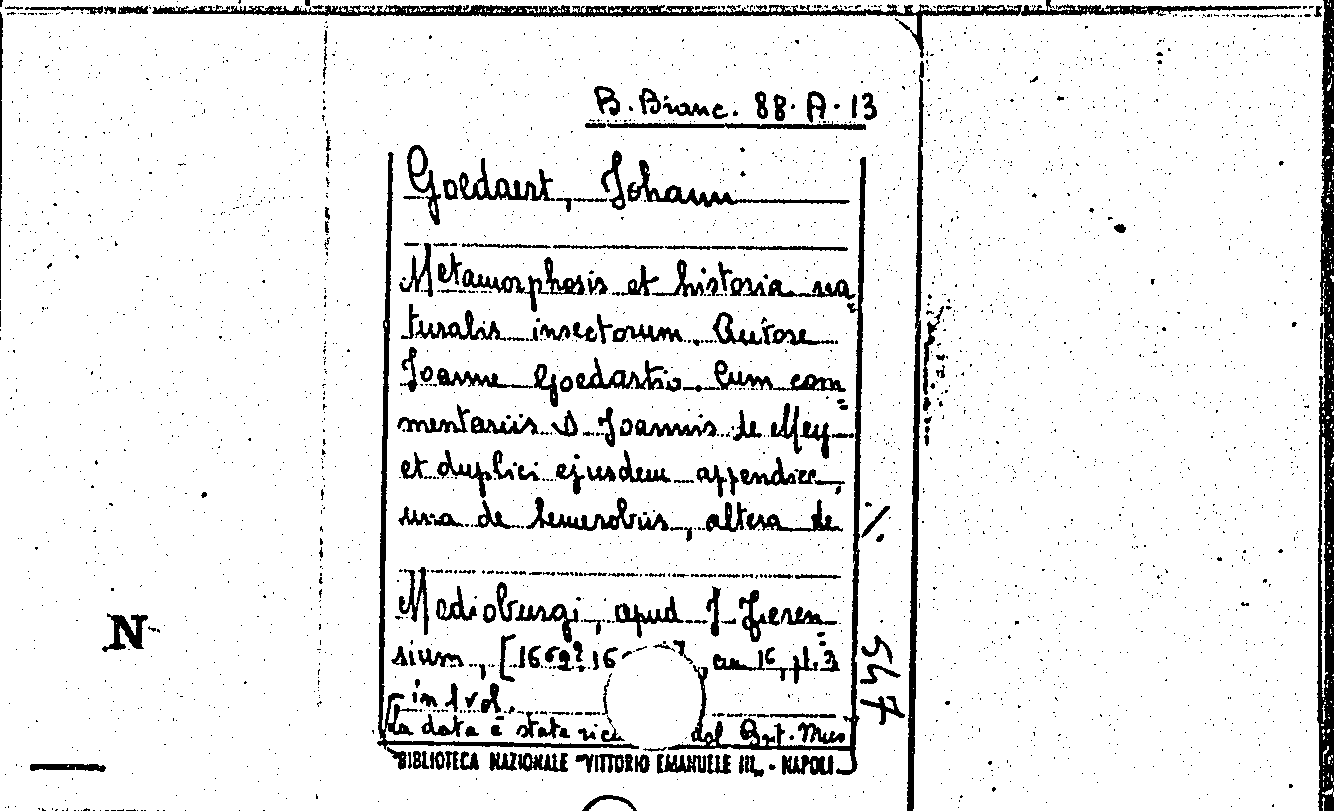 B. Branc. 88. A. 13
Goedaert, Johann
Metamorphosis et historia na=
turalis insectorum. Autore
Joanne Goedartio. Cum com=
mentariis D. Joannis de Mey
et duplici ejusdem appendice,
una de hemerobiis, altera de
./.
Medioburgi, apud J. Fieren=
sium, [1662? 16 ?], in 16, pt. 3
in 1 vol.
[La data è stata dal Brit. Mus
BIBLIOTECA NAZIONALE "VITTORIO EMANUELE III" - NAPOLI
N
547